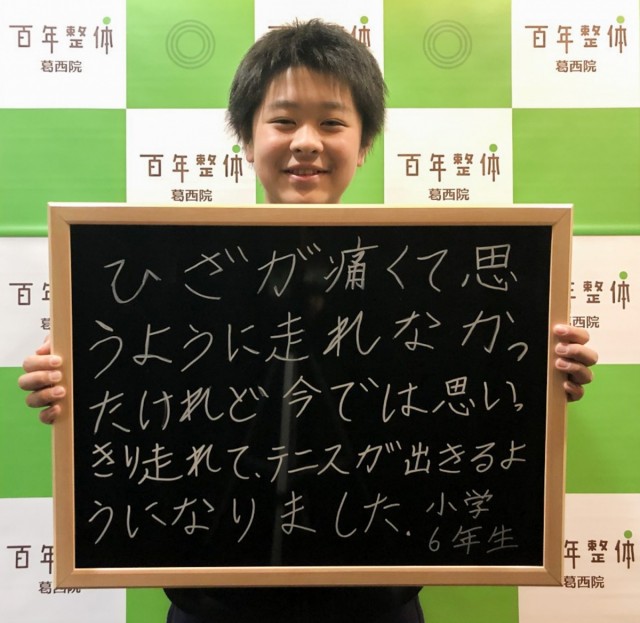 百年整体
葛西院
百年整体
葛西院
百年整体
葛西院
百年整体
葛西院
ひざが痛くて思
うように走れなかっ
たけれど今では思いっ
きり走れて、テニスが出きるよ
うになりました.
小学
6年生
百年整体
葛西院
年整体
葛西院